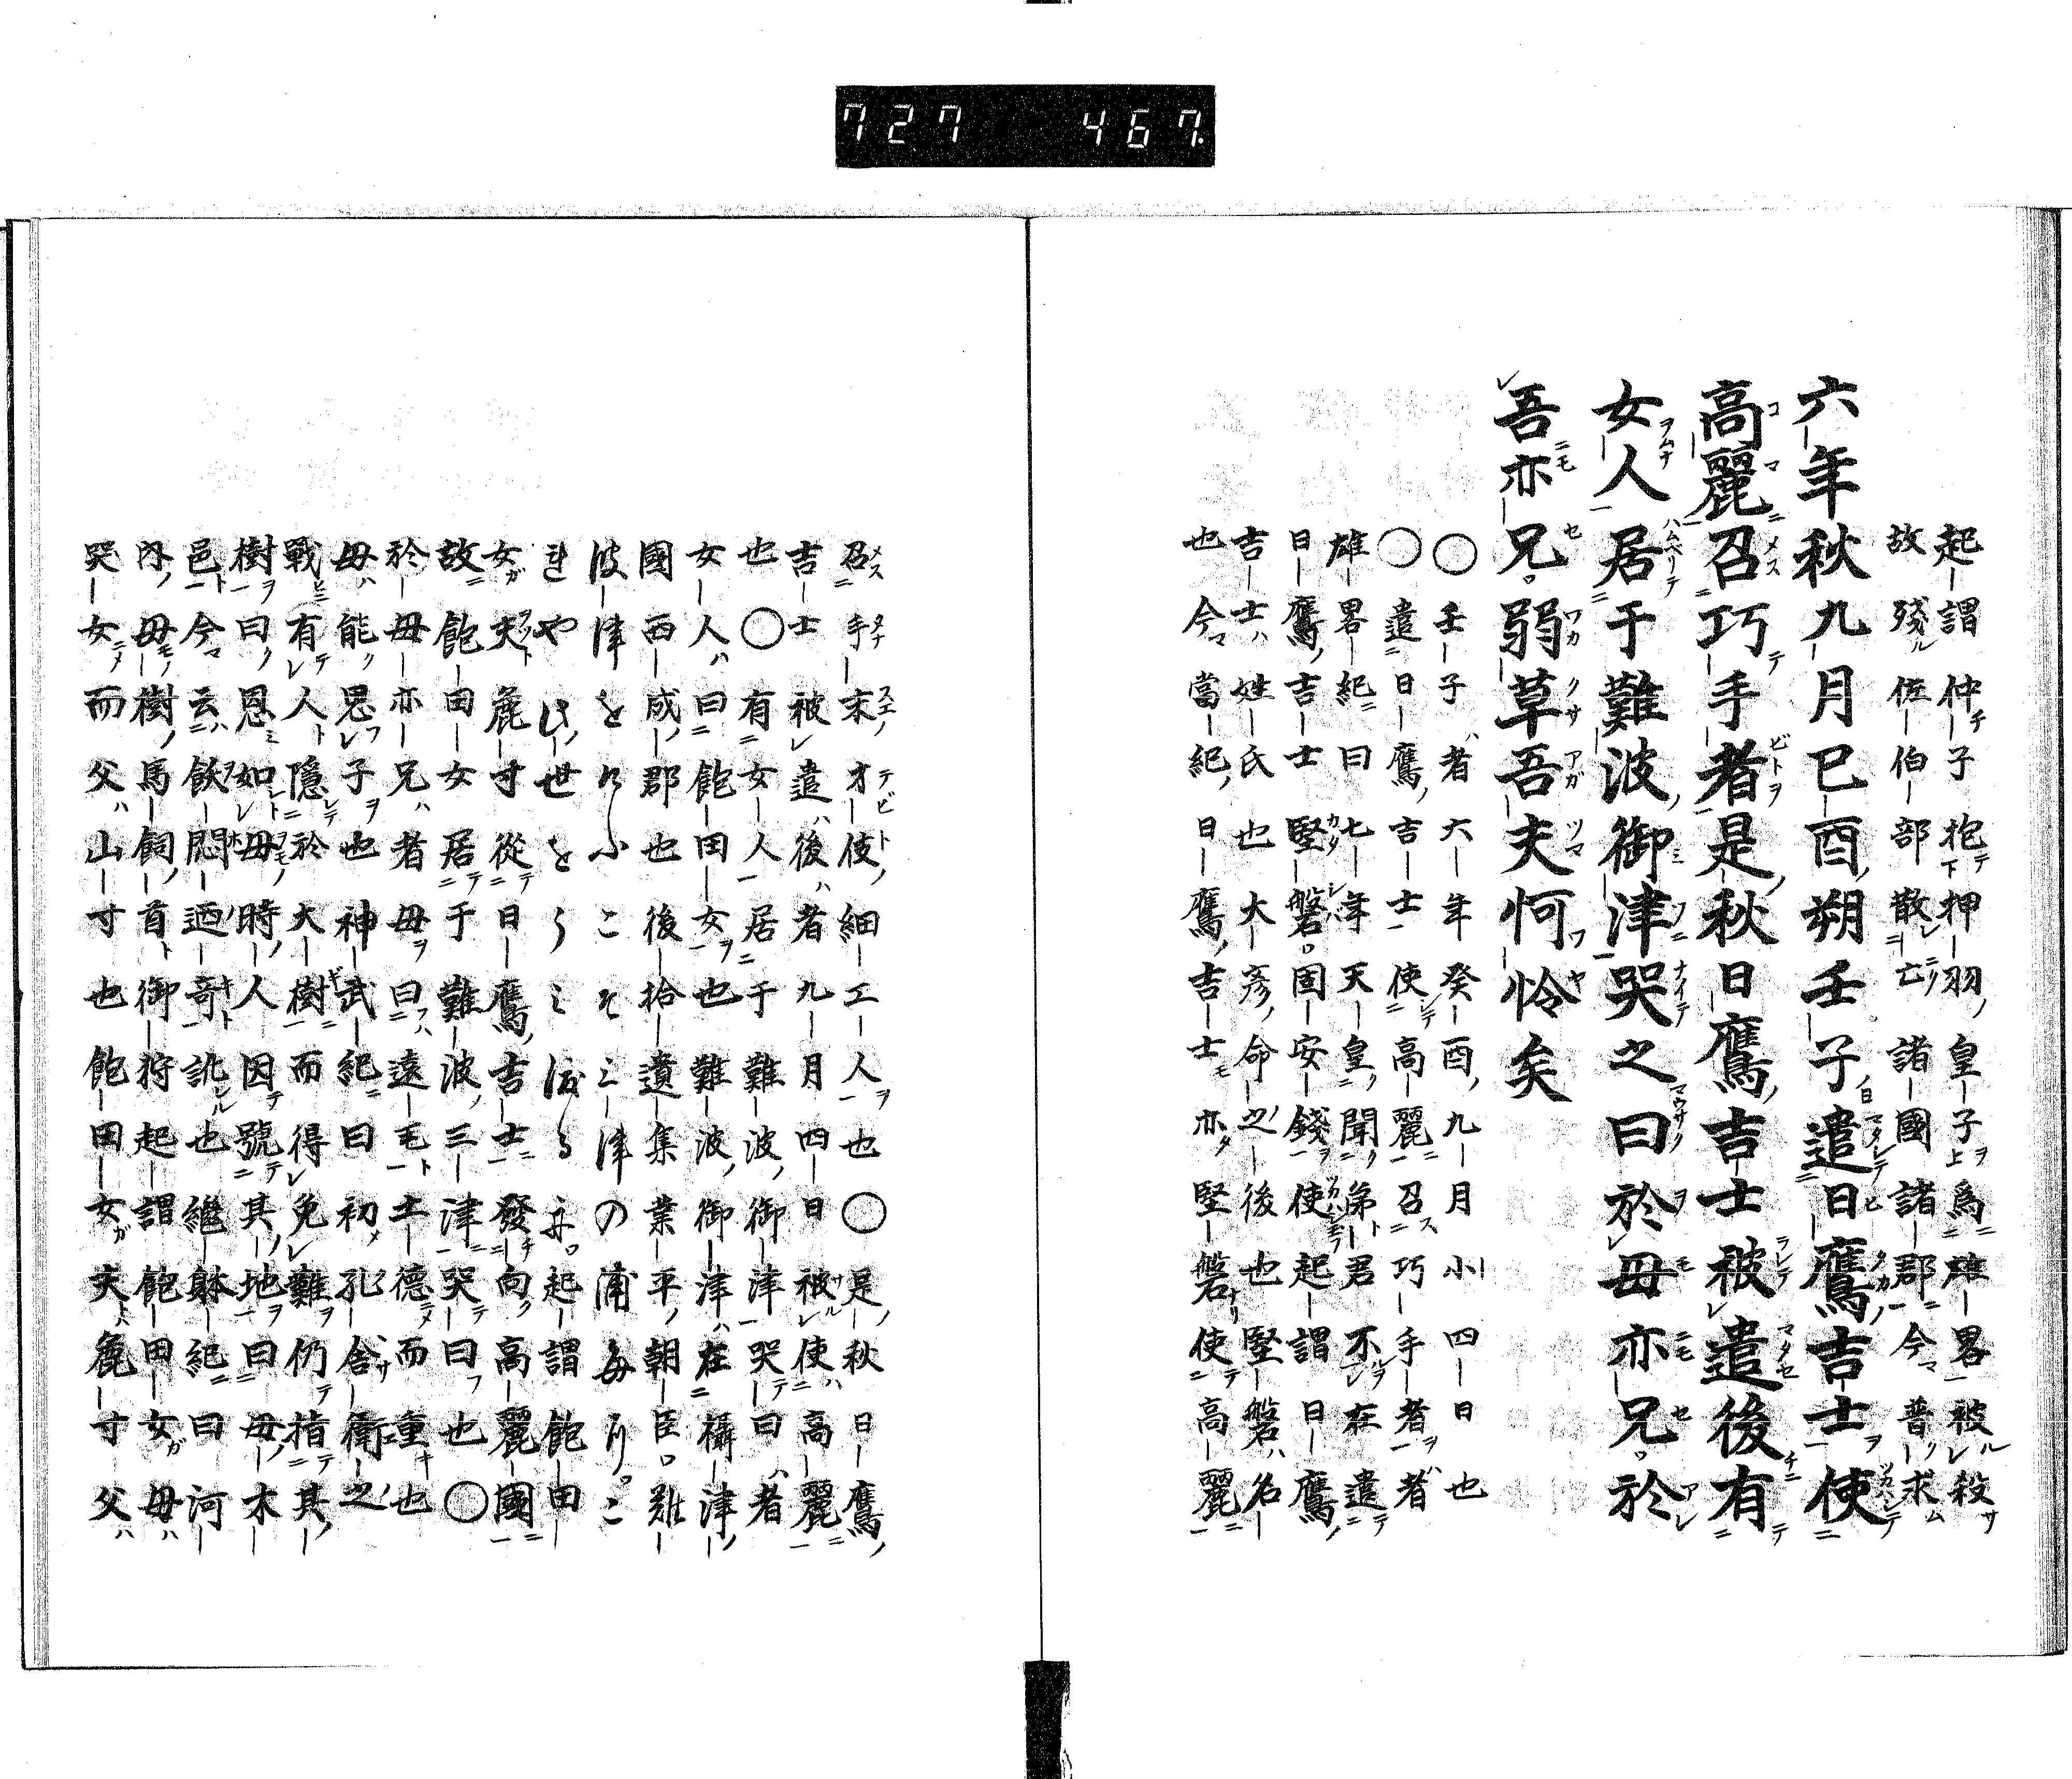 727 467.
起謂仲子抱押羽皇子爲雄畧被殺
故殘佐伯部散亡諸國諸郡今普求
六年秋九月已酉朔壬子遣日鷹吉士使
高麗召巧手者是秋日鷹吉士被遣後有
女人居于難波御津哭之曰於母亦兄於
吾亦兄弱草吾夫怜矣
○壬子者六年癸酉九月小四日也
○遣日鷹吉士使高麗召巧手者者
雄畧紀曰七年天皇聞弟君不在遣
日鷹吉士堅磐固安錢使起謂日鷹
吉士姓氏也大彥命之後也堅磐名
也今當紀日鷹吉士亦堅磐使高麗
召手末才伎細工人也○是秋日鷹
吉士被遣後者九月四日被使高麗
也○有女人居于難波御津哭曰者
女人曰飽田女也難波御津在攝津
國西成郡也後拾遺集業平朝臣難
波津をけふこそみつの浦毎にこ
れや此世をうみ渡る舟起謂飽田
女夫麁寸從日鷹吉士發向高麗國
故飽田女居于難波三津哭曰也○
於母亦兄者母曰遠毛士德而重也
母能思子也神武紀曰初孔舍衛之
戰有人隱於大樹而得免難仍指其
樹曰恩如母時人因號其地曰母木
邑今云飫悶廼奇訛也繼躰紀曰河
內母樹馬飼首御狩起謂飽田女母
哭女而父山寸也飽田女夫麁寸父